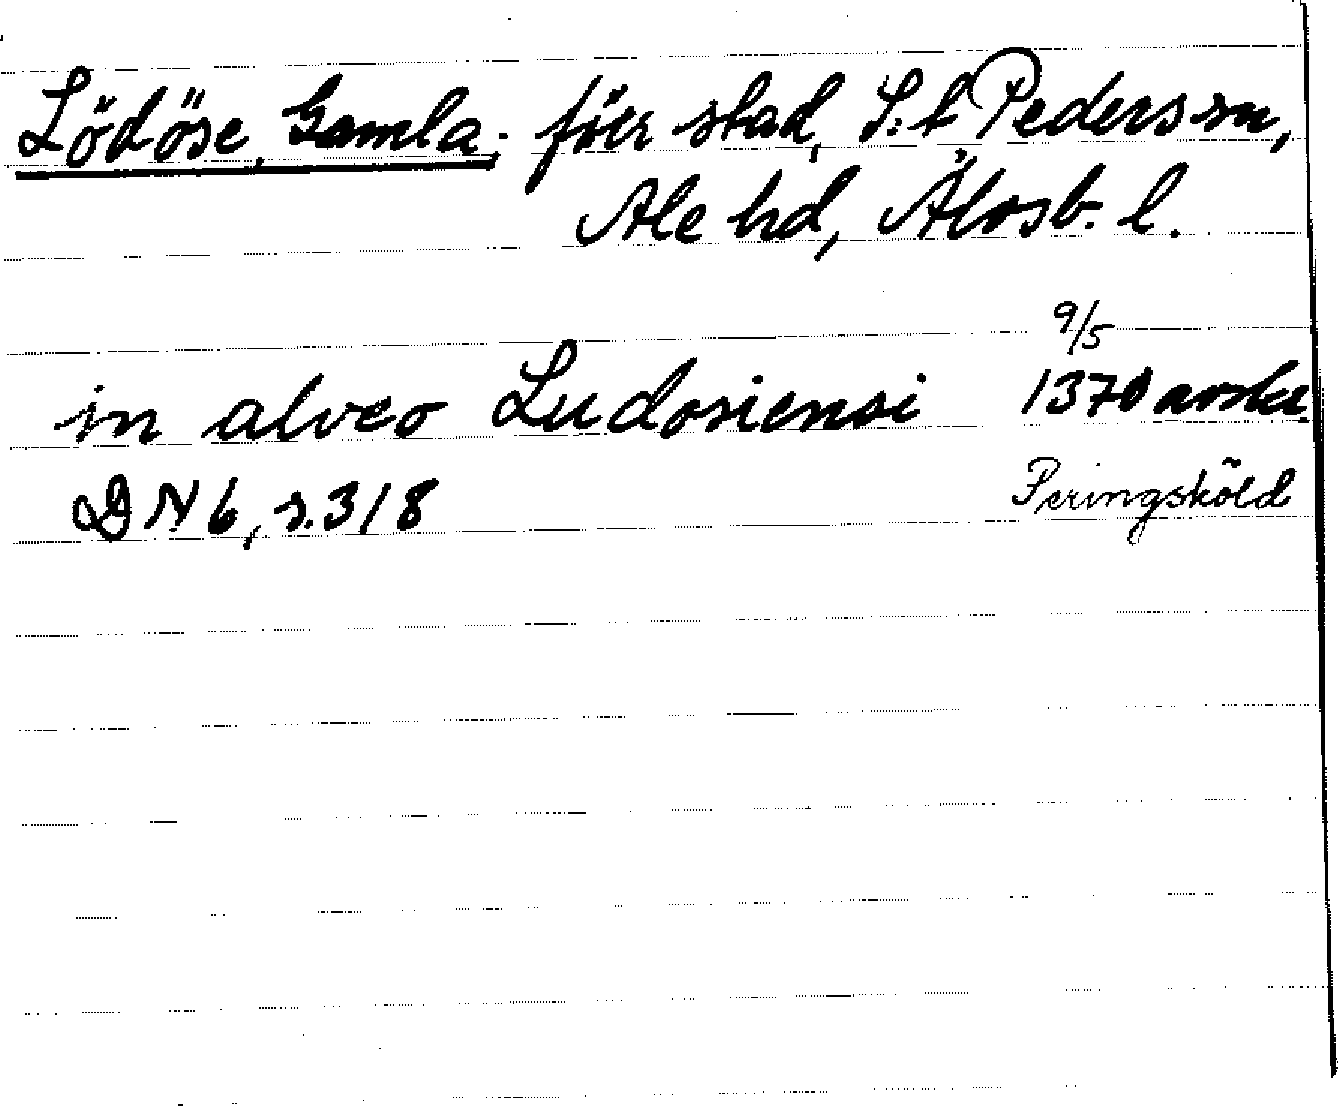 Lödöse, Gamla, förr stad, S:t Peders sn,
Ale hd, Älvsb. l.
9/5
in alveo Ludosiensi 1370 avskr
DN 6, s. 318 Peringsköld